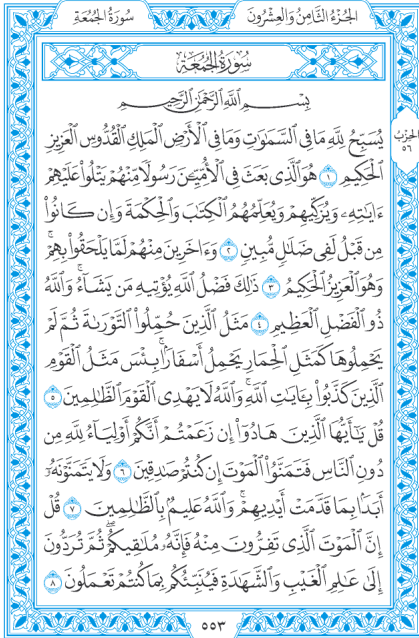 الجُزْءُ الثَّامِنُ وَالعِشْرُونَ
سُورَةُ الجُمُعَةِ
سُورَةُ الجُمُعَةِ
بِسْمِ اللَّهِ الرَّحْمَٰنِ الرَّحِيمِ
يُسَبِّحُ لِلَّهِ مَا فِي السَّمَاوَاتِ وَمَا فِي الْأَرْضِ الْمَلِكِ الْقُدُّوسِ الْعَزِيزِ
الْحَكِيمِ ١ هُوَ الَّذِي بَعَثَ فِي الْأُمِّيِّينَ رَسُولًا مِّنْهُمْ يَتْلُوا عَلَيْهِمْ
ءَايَاتِهِ وَيُزَكِّيهِمْ وَيُعَلِّمُهُمُ الْكِتَابَ وَالْحِكْمَةَ وَإِن كَانُوا
مِن قَبْلُ لَفِي ضَلَالٍ مُّبِينٍ ٢ وَءَاخَرِينَ مِنْهُمْ لَمَّا يَلْحَقُوا بِهِمْ ۚ
وَهُوَ الْعَزِيزُ الْحَكِيمُ ٣ ذَٰلِكَ فَضْلُ اللَّهِ يُؤْتِيهِ مَن يَشَاءُ ۚ وَاللَّهُ
ذُو الْفَضْلِ الْعَظِيمِ ٤ مَثَلُ الَّذِينَ حُمِّلُوا التَّوْرَىٰةَ ثُمَّ لَمْ
يَحْمِلُوهَا كَمَثَلِ الْحِمَارِ يَحْمِلُ أَسْفَارًا ۚ بِئْسَ مَثَلُ الْقَوْمِ
الَّذِينَ كَذَّبُوا بِـَٔايَاتِ اللَّهِ ۚ وَاللَّهُ لَا يَهْدِي الْقَوْمَ الظَّالِمِينَ ٥
قُلْ يَٰٓأَيُّهَا الَّذِينَ هَادُوا إِن زَعَمْتُمْ أَنَّكُمْ أَوْلِيَاءُ لِلَّهِ مِن
دُونِ النَّاسِ فَتَمَنَّوُا الْمَوْتَ إِن كُنتُمْ صَادِقِينَ ٦ وَلَا يَتَمَنَّوْنَهُ
أَبَدًا بِمَا قَدَّمَتْ أَيْدِيهِمْ ۚ وَاللَّهُ عَلِيمٌ بِالظَّالِمِينَ ٧ قُلْ
إِنَّ الْمَوْتَ الَّذِي تَفِرُّونَ مِنْهُ فَإِنَّهُ مُلَاقِيكُمْ ۖ ثُمَّ تُرَدُّونَ
إِلَىٰ عَالِمِ الْغَيْبِ وَالشَّهَادَةِ فَيُنَبِّئُكُم بِمَا كُنتُمْ تَعْمَلُونَ ٨
الحِزْبُ
٥٦
٥٥٣